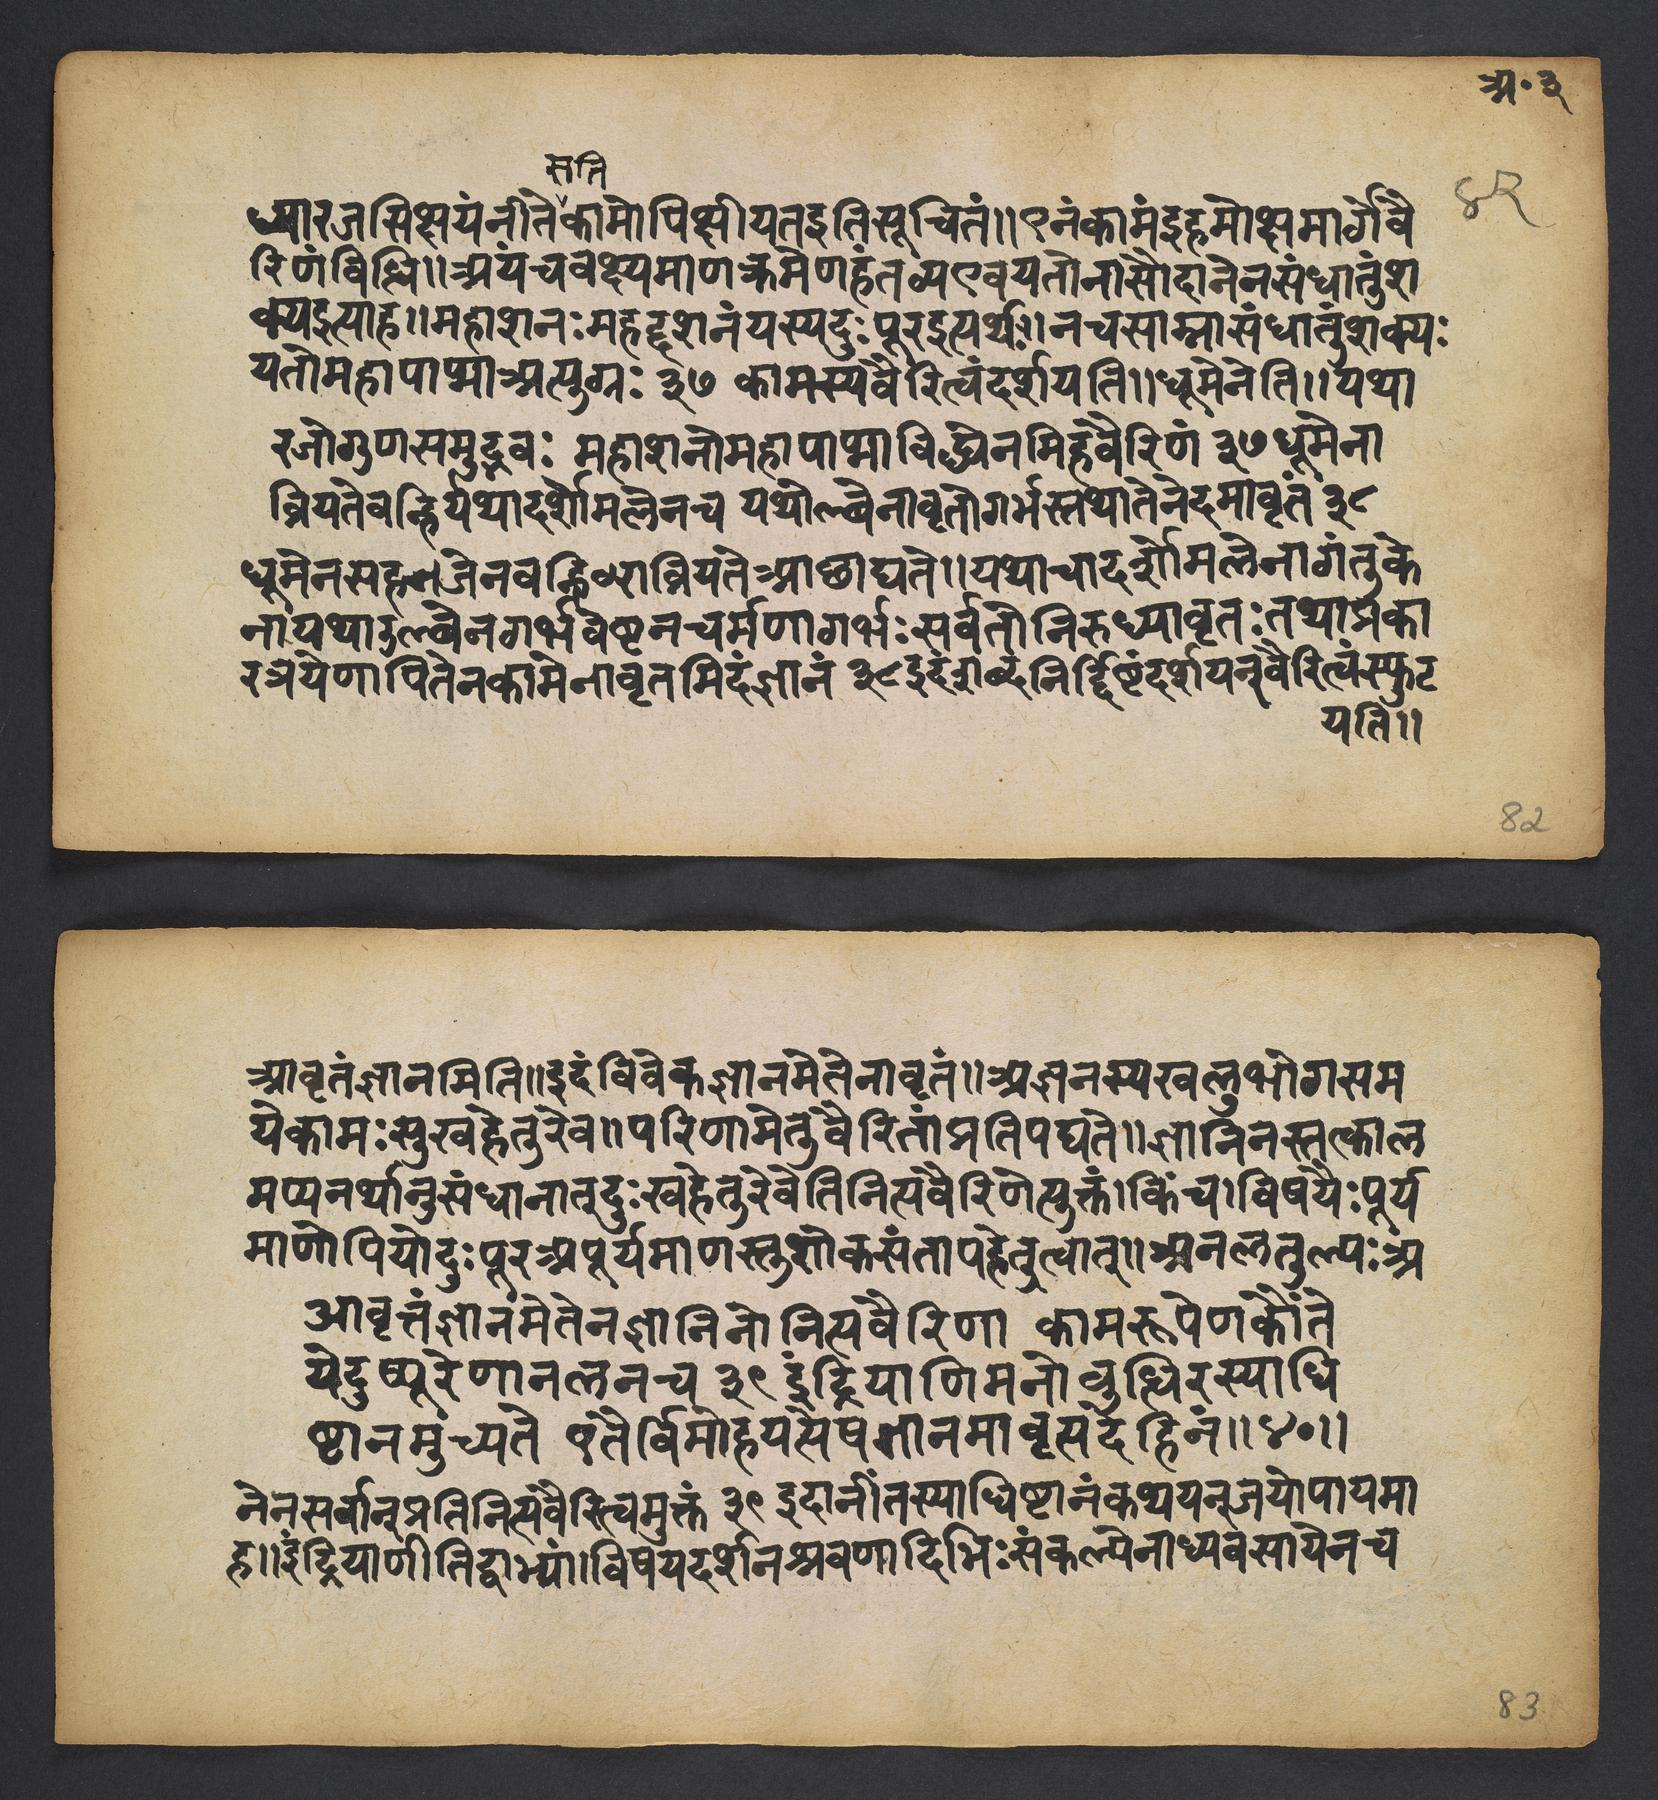 अ॰ ३
सति
ध्यारजसिक्षयंनीतेकामोपिक्षीयतइतिसूचितं॥एनंकामंइहमोक्षमार्गेवै
४२
रिणंविद्धि॥अयंचवक्ष्यमाणक्रमेणहंतव्यएवयतोनासौदानेनसंधातुंश
क्यइत्याह॥महाशनः महदशनंयस्यदुःपूरइत्यर्थः॥नचसाम्नासंधातुंशक्यः
यतोमहापाप्माअत्युग्रः ३७ कामस्यवैरित्वंदर्शयति॥धूमेनेति॥यथा
रजोगुणसमुद्भवः महाशनोमहापाप्माविद्ध्येनमिहवैरिणं ३७ धूमेना
व्रियतेवन्हिर्यथादर्शोमलेनच यथोल्बेनावृतोगर्भस्तथातेनेदमावृतं ३८
धूमेनसहजेनवन्हिआव्रियतेआछाद्यते॥यथाचादर्शोमलेनागंतुके
नायथाउल्बेनगर्भवेष्टनचर्मणागर्भः सर्वतोनिरुध्यावृतः तथाप्रका
रत्रयेणापितेनकामेनावृतमिदंज्ञानं ३८ इदंशब्दनिर्द्दिष्टंदर्शयन्वैरित्वंस्फुट
यति॥
82
आवृतंज्ञानमिति॥इदंविवेकज्ञानमेतेनावृतं॥अज्ञनस्यखलुभोगसम
येकामः सुखहेतुरेव॥परिणामेतुवैरितांप्रतिपद्यते॥ज्ञानिनस्तत्काल
मप्यनर्थानुसंधानात्दुःखहेतुरेवेतिनित्यवैरिणेत्युक्तं।किंच।विषयैः पूर्य
माणोपियोदुःपूरअपूर्यमाणस्तुशोकसंतापहेतुत्वात्॥अनलतुल्यः अ
आवृत्तंज्ञानंमेतेनज्ञानिनो नित्यवैरिणा कामरूपेणकौंते
येदुष्पूरेणानलनच ३९ इंद्रियाणिमनोबुद्धिरस्याधि
ष्ठानमुंच्यते एतैर्विमोहयत्येषज्ञानमावृत्यदेहिनं॥४०॥
नेनसर्वान्प्रतिनित्यंवैरित्वमुक्तं ३९ इदानींतस्याधिष्टानंकथयन्जयोपायमा
ह॥इंद्रियाणीतिद्वाभ्यां।विषयदर्शनश्रवणादिभिः संकल्पेनाध्यवसायेनच
83